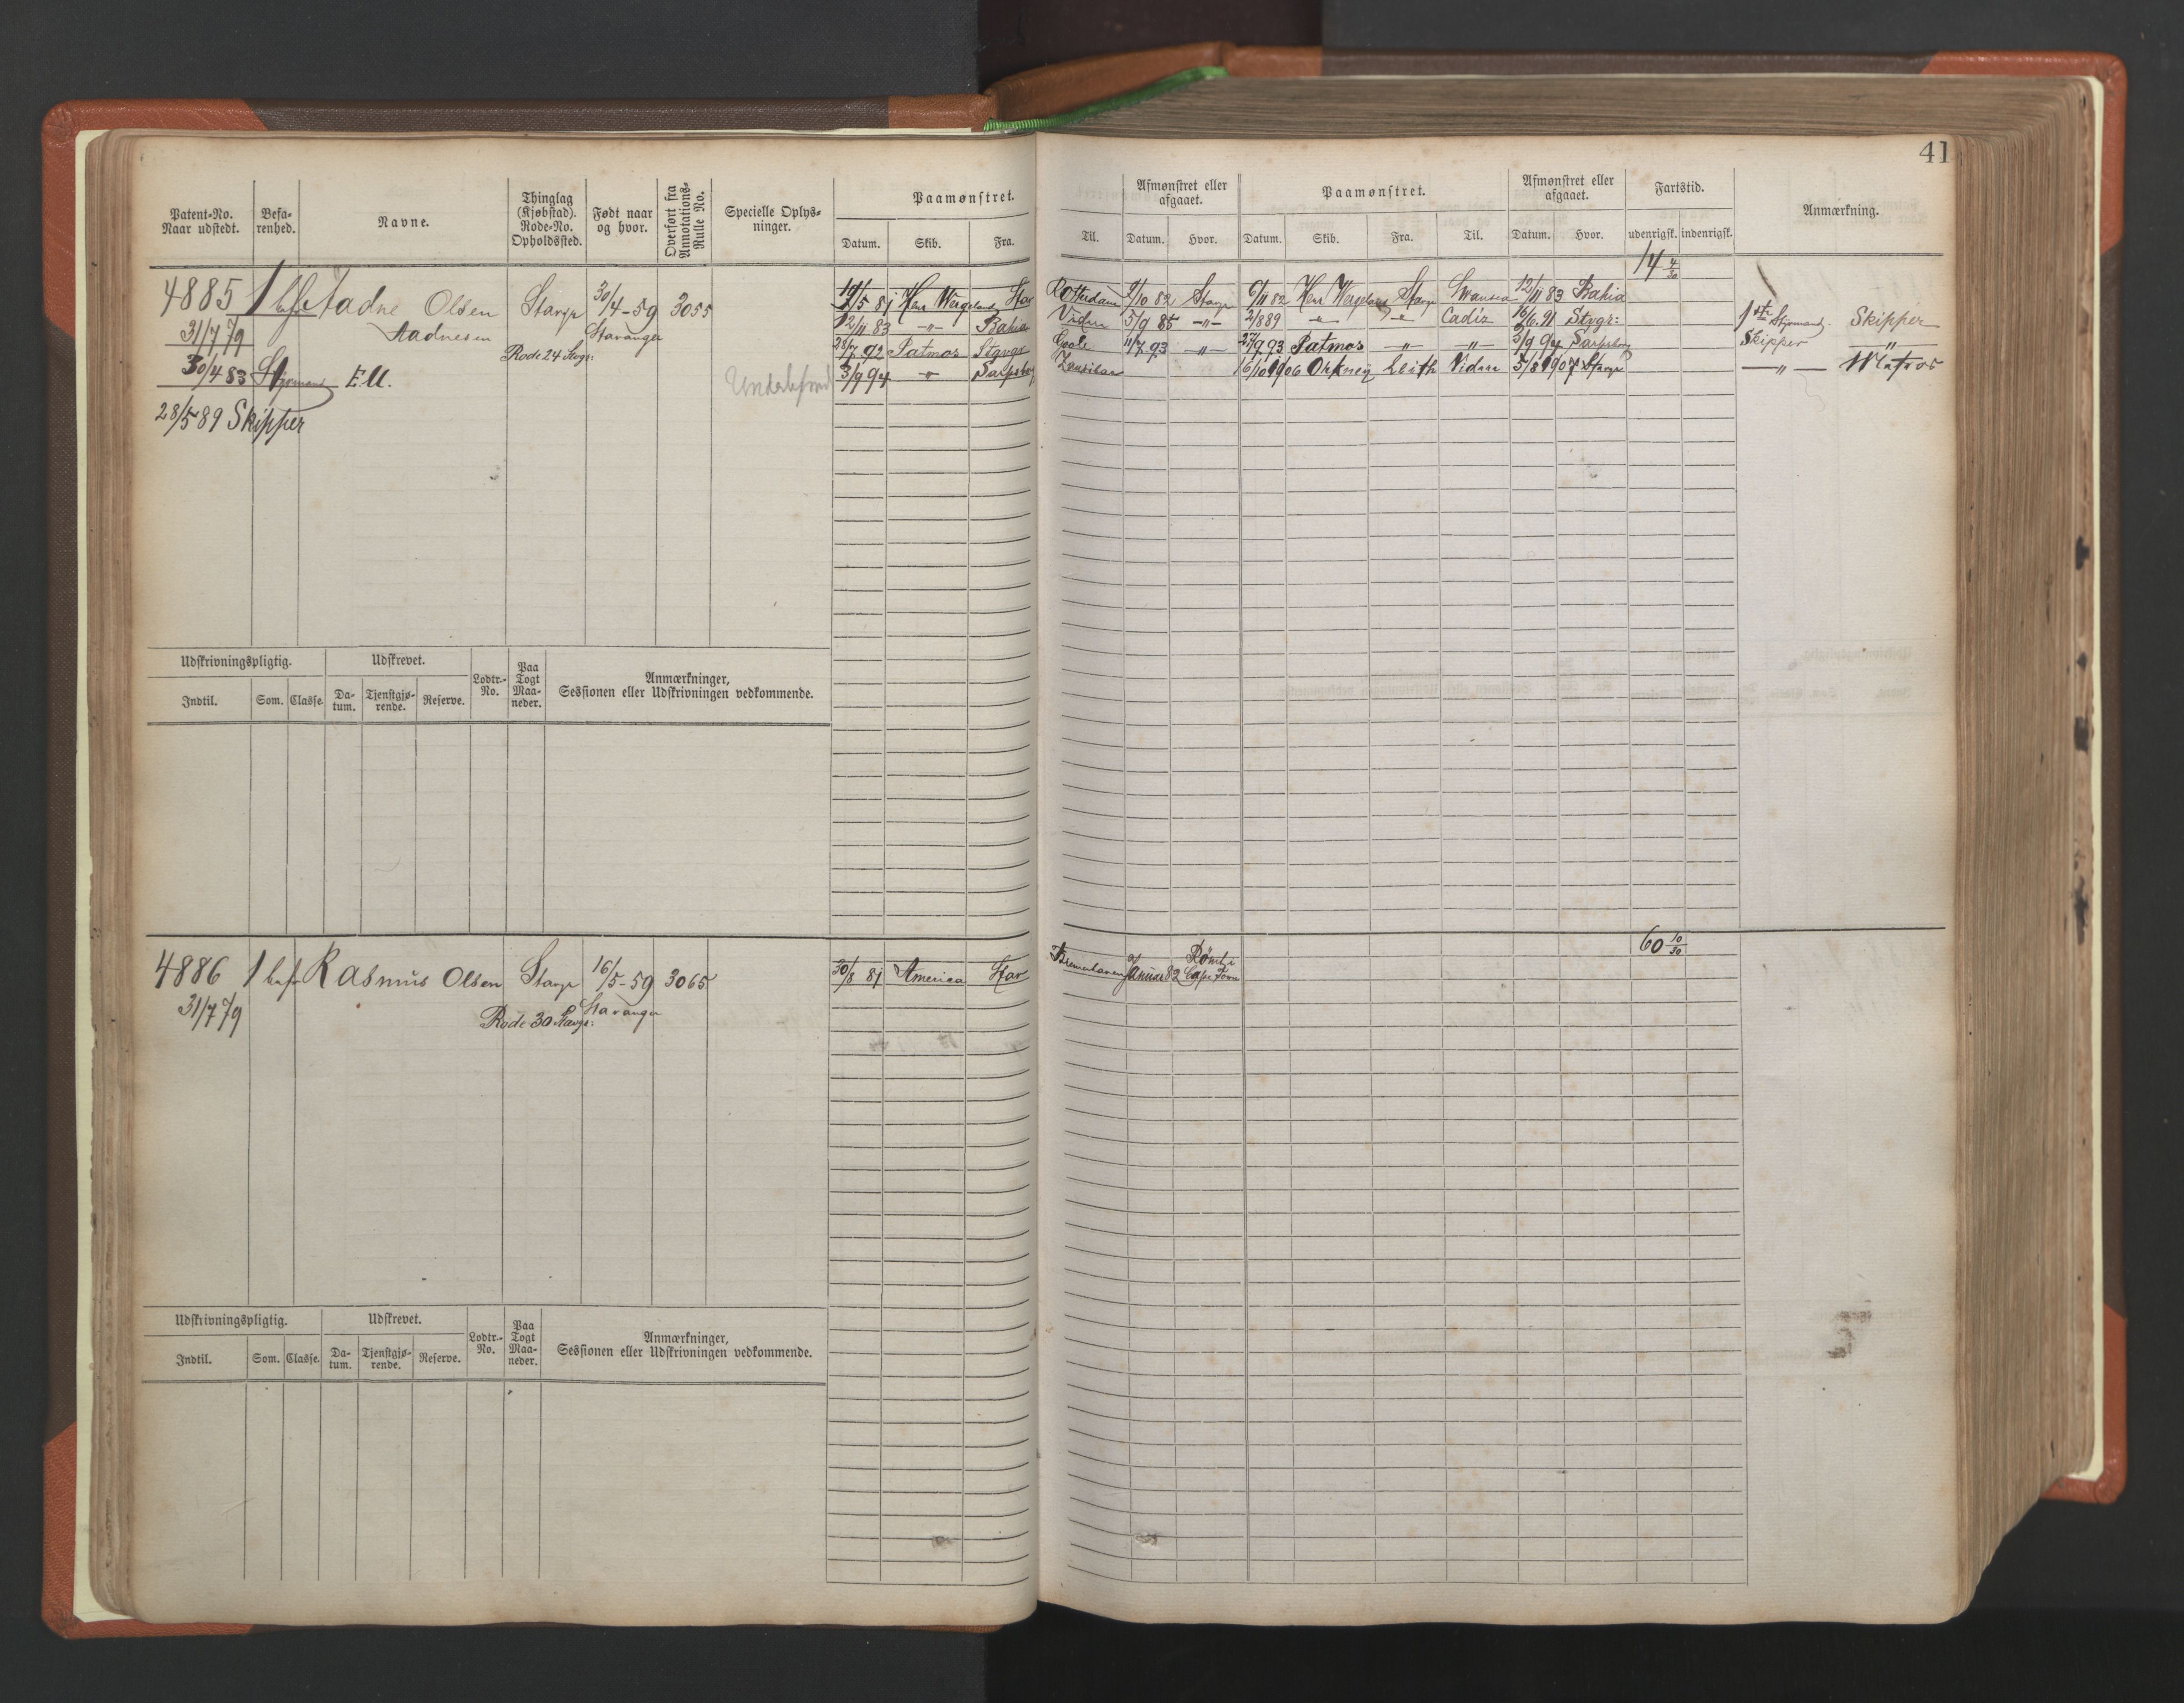 41
Patent-No. Naar udstedt. Befarenhed. Navne. Thinglag (Kjøbstad). Rode-No. Opholdssted. Født naar og hvor. Overført fra Annotations-Rulle No. Specielle Oplysninger. Paamønstret. Afmønstret eller afgaaet. Paamønstret. Afmønstret eller afgaaet. Fartstid. Anmærkning.
Datum. Skib. Fra. Til. Datum. Hvor. Datum. Skib. Fra. Til. Datum. Hvor. udenrigsk. indenrigsk.
14 4/30
4885 1 bef Aadne Olsen Stavgr 30/4-59 3055 19/5 81 Hen Wergeland Stav Rotterdam 9/10 82 Stavgr 6/11 82 Hen Wergeland Stavgr Swansea 12/11 83 Bahia
31/7 79 Aadnesen Stavanger 12/11 83 -"- Bahia Viden 5/9 85 -"- 2/889 -"- -"- Cadiz 16/6.91 Stvgr: 1ste Styrmand. Skipper
Rode 24 Stvgr: 28/7 92 Patmos Stavgr Goole 11/7 93 -"- 27/9 93 Patmos -"- -"- 3/9 94 Sarpsborg Skipper -"-
30/4 83 Styrmand E.U. 3/9 94 -"- Sarpsborg 16/10 1906 Orkney Leith Viden 3/8 1907 Stavgr -"- Matros
28/5 89 Skipper
Udskrivningspligtig. Udskrevet. Lodtr.-No. Paa Togt Maaneder. Anmærkninger, Sessionen eller Udskrivningen vedkommende.
Indtil. Som. Classe. Datum. Tjenstgjørende. Reserve.
60 10/30
4886 1 bef Rasmus Olsen Stavgr 16/5-59 3065 30/8 81 America Stav Bremerhaven Januar 82 Rømt i Cape Town
31/7 79 Rode 30 Stavgr: Stavanger
Udskrivningspligtig. Udskrevet. Lodtr.-No. Paa Togt Maaneder. Anmærkninger, Sessionen eller Udskrivningen vedkommende.
Indtil. Som. Classe. Datum. Tjenstgjørende. Reserve.